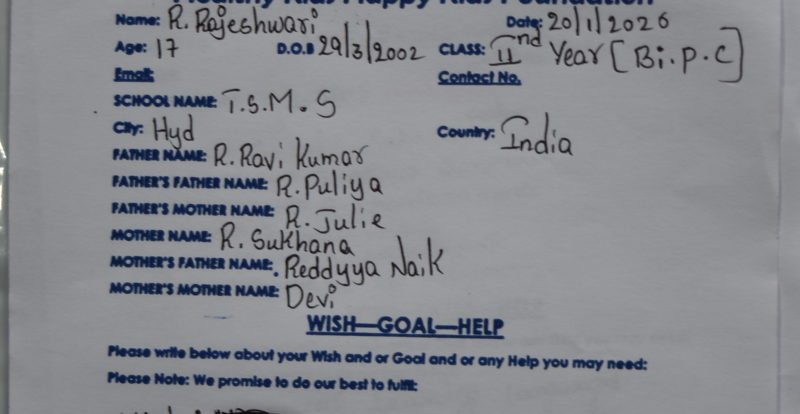 Healthy Kids Happy Kids Foundation
Name: R. Rajeshwari Date: 20/1/2020
Age: 17 D.O.B 29/3/2002 CLASS: IInd Year [Bi.p.c]
Email: Contact No.
SCHOOL NAME: T.S.M.S
City: Hyd Country: India
FATHER NAME: R. Ravi Kumar
FATHER'S FATHER NAME: R. Puliya
FATHER'S MOTHER NAME: R. Julie
MOTHER NAME: R. Sukhana
MOTHER'S FATHER NAME: Reddyya Naik
MOTHER'S MOTHER NAME: Devi
WISH—GOAL—HELP
Please write below about your Wish and or Goal and or any Help you may need:
Please Note: We promise to do our best to fulfil: